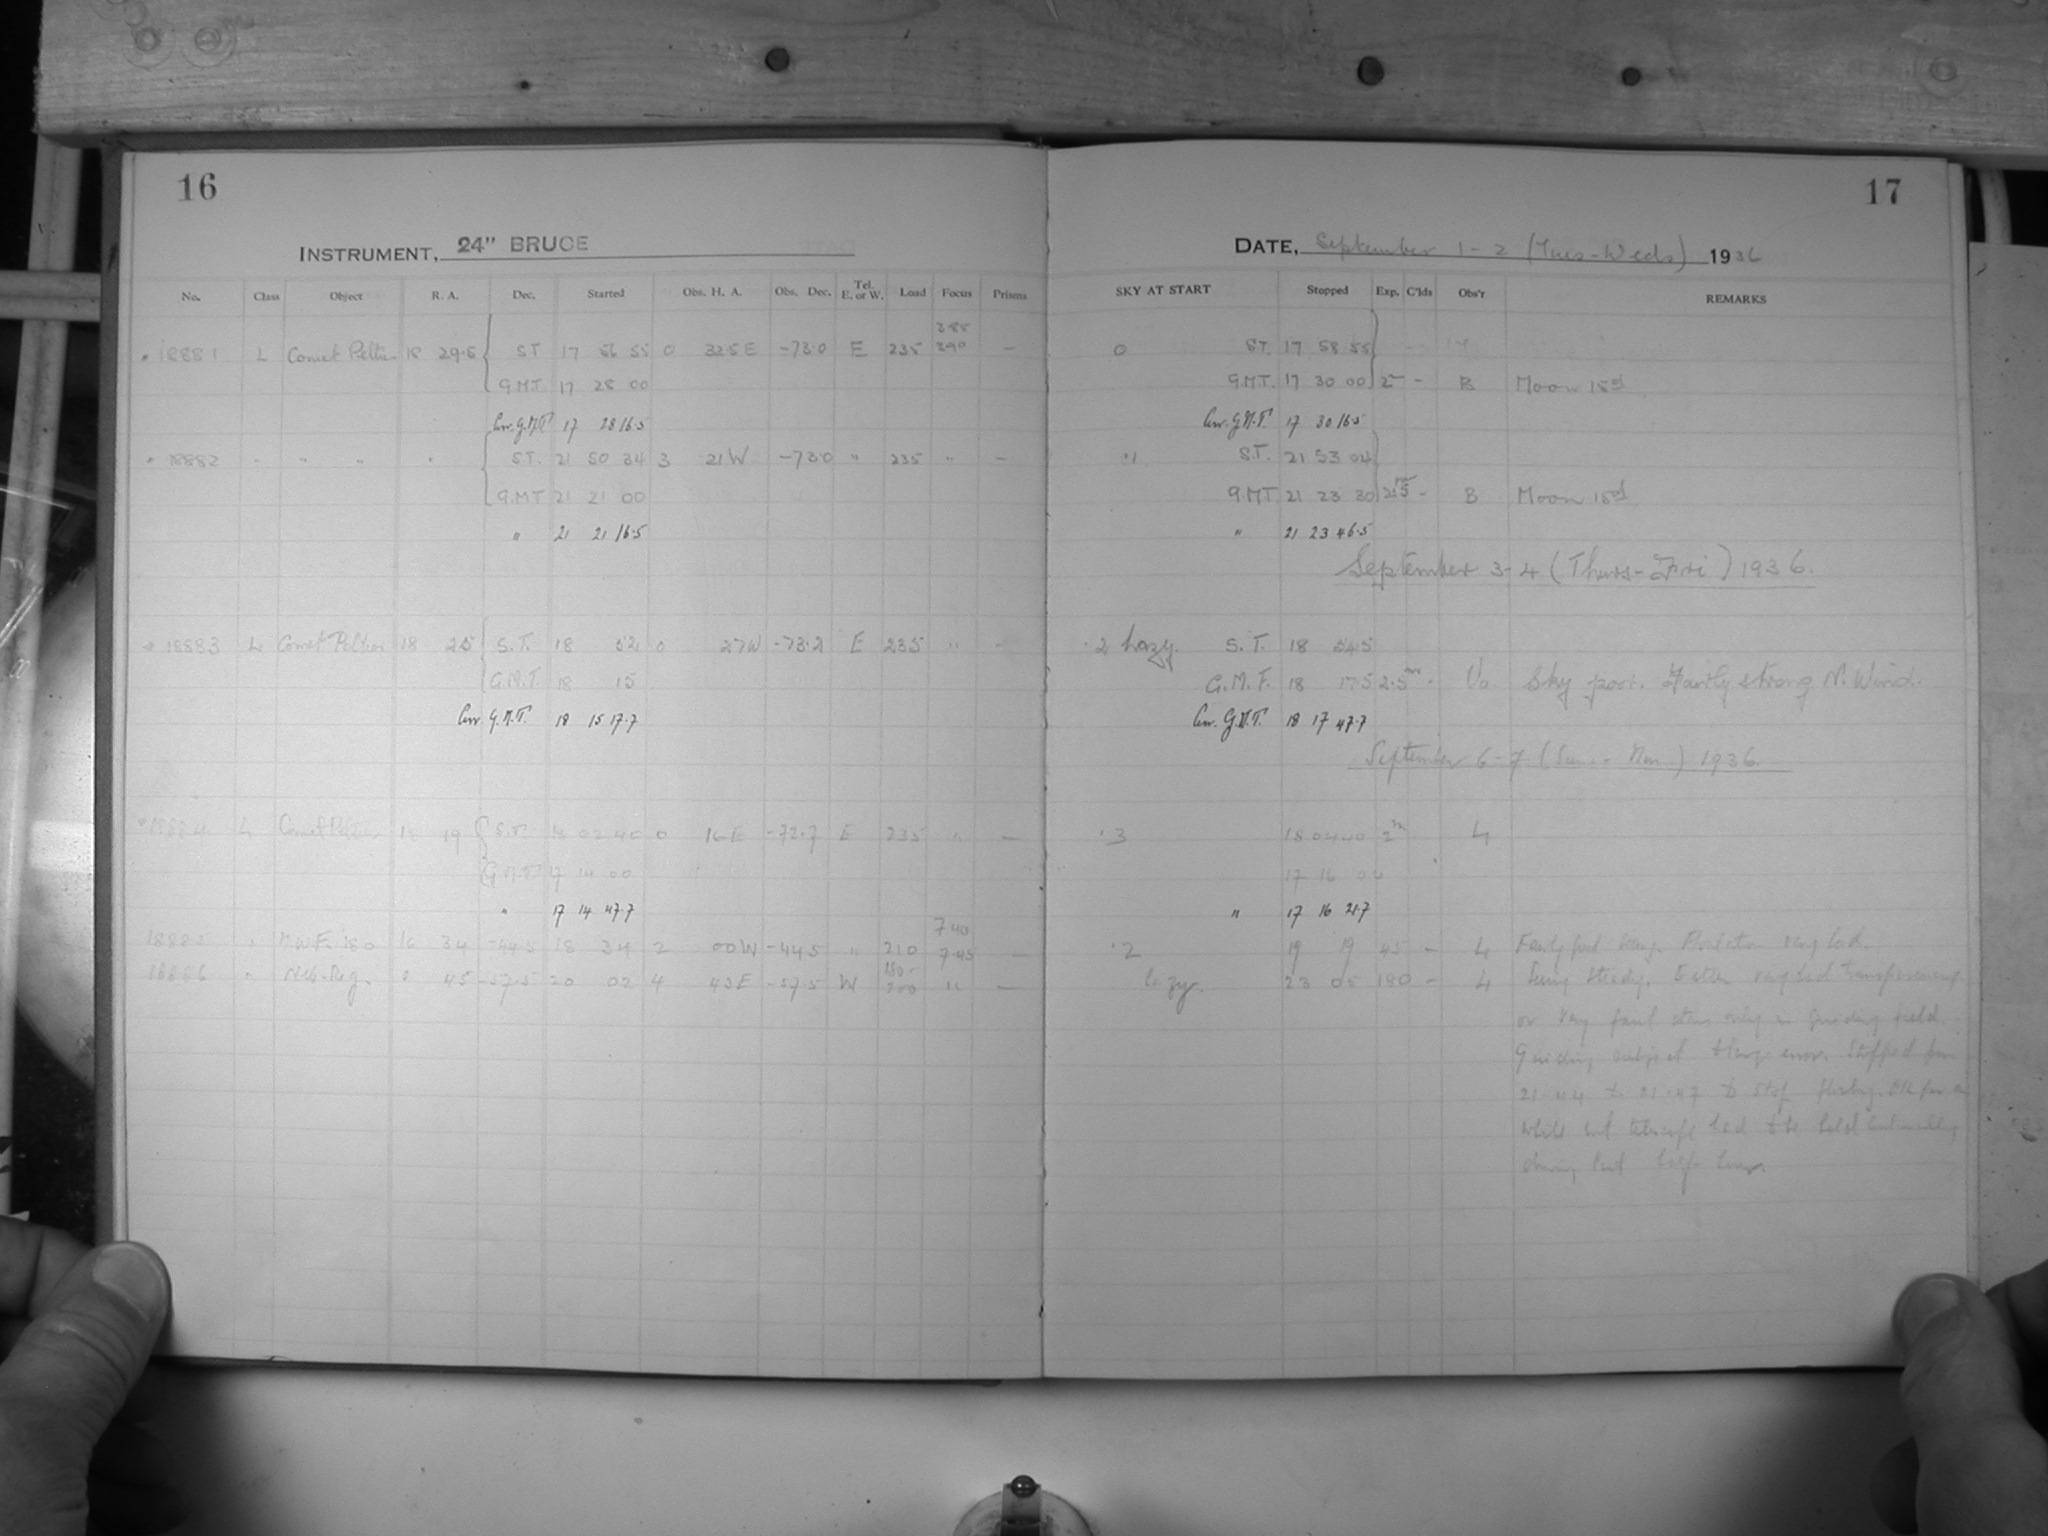 16
INSTRUMENT, 24" BRUCE
No. Class Object R. A. Dec. Started Obs. H. A. Obs. Dec. Tel. E. or W. Load Focus Prisms
385
18881 L Comet Peltier 18 29.6 ST 17 56 55 0 32.5 E -73.0 E 235 390 —
G.M.T. 17 28 00
Corr. G.M.T 17 28 16.5
18882 " " " S.T. 21 50 34 3 21 W -73.0 " 235 " —
G.M.T 21 21 00
" 21 21 16.5
18883 L Comet Peltier 18 25 S.T. 18 52 0 27 W -73.2 E 235 " -
G.M.T 18 15
Corr. G.M.T. 18 15 17.7
18884 L Comet Peltier 18 19 S.T. 18 02 40 0 16 E -72.7 E 235 " —
G.M.T 17 14 00
" 17 14 47.7
740
18885 " 16 34 -44.5 18 34 2 00 W -44.5 " 210 745 —
18886 " Neb. Reg. 0 45 -57.5 20 02 4 43 E -57.5 W 200 " —
17
DATE, September 1-2 (Tues-Weds) 1936
SKY AT START Stopped Exp. C'lds Obs'r REMARKS
0 S.T. 17 58 55
G.M.T. 17 30 00 2 - B Moon 15d
Corr. G.M.T. 17 30 16.5
.1 S.T. 21 53 04
G.M.T 21 23 30 2.5 - B Moon 15d
" 21 23 46.5
September 3-4 (Thurs-Fri) 1936.
.2 hazy. S.T. 18 54.5
G.M.T. 18 17.5 2.5m - Sky poor. Fairly strong N. Wind.
Corr. G.M.T. 18 17 47.7
September 6-7 (Sun. - Mon.) 1936.
.3 18 04 40 2m L
17 16 00
" 17 16 21.7
.2 19 19 45 - L Fairly good seeing. very bad.
hazy. 23 05 180 - L Seeing steady. very bad transparency
or very faint stars only in guiding field.
Guiding subject to large error. Stopped from
21.44 to 21.47 to stop for a
while but telescope had to be held continually
during last half hour.